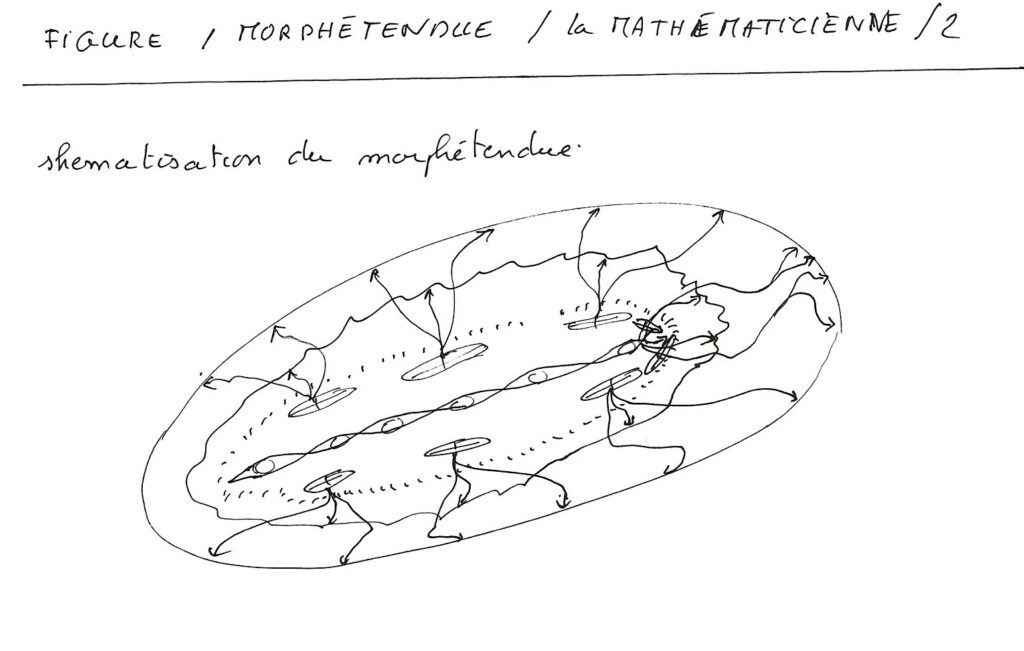 FIGURE / MORPHÉTENDUE / la MATHÉMATICIENNE / 2
shematisation du morphétendue.